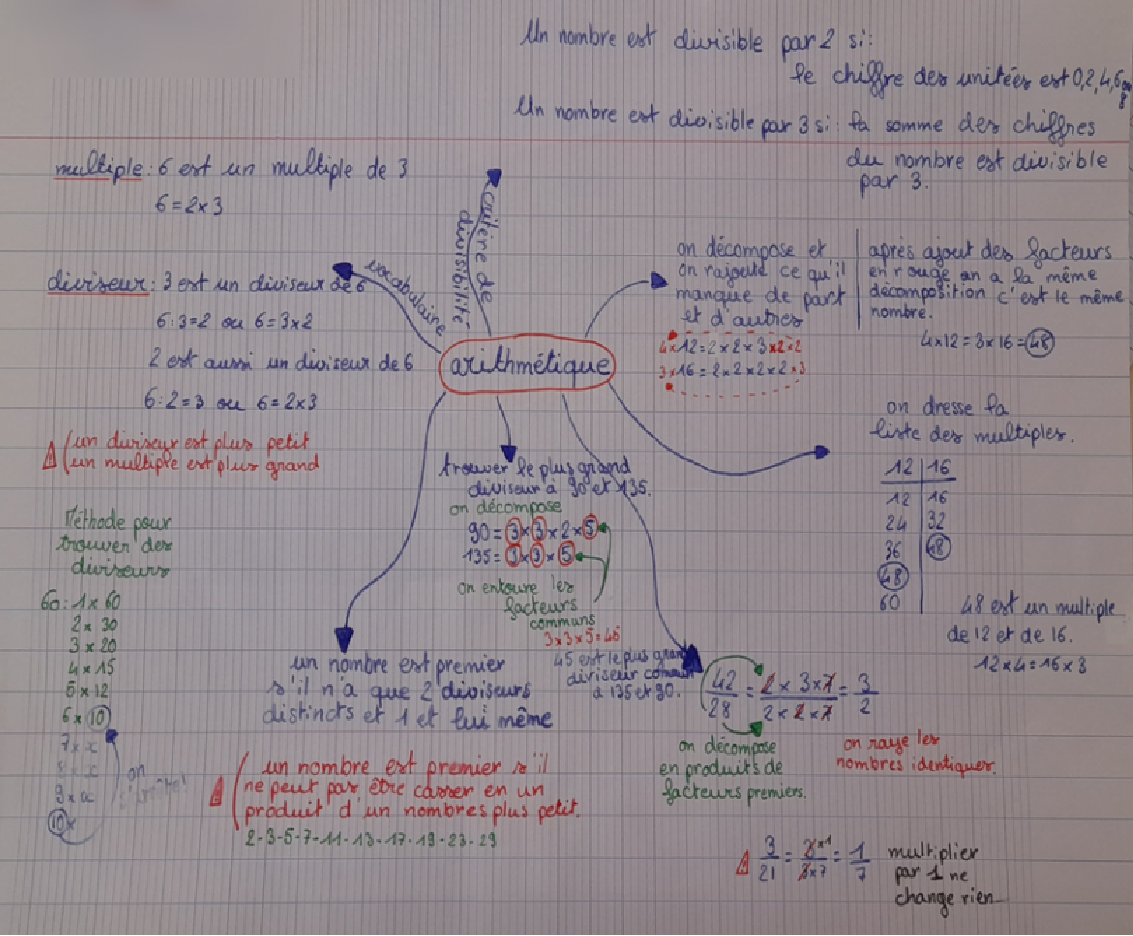 Un nombre est divisible par 2 si:
le chiffre des unitées est 0,2,4,6 ou 8
Un nombre est divisible par 3 si: la somme des chiffres
du nombre est divisible
par 3.
multiple: 6 est un multiple de 3
6 = 2 x 3
critère de
divisibilité
vocabulaire
diviseur: 3 est un diviseur de 6
6:3=2 ou 6=3x2
2 est aussi un diviseur de 6
6:2=3 ou 6=2x3
un diviseur est plus petit
un multiple est plus grand
arithmétique
on décompose et
on rajoute ce qu'il
manque de part
et d'autres
4x12=2x2x3x2x2
3x16=2x2x2x2x3
après ajout des facteurs
en rouge on a la même
décomposition c'est le même
nombre.
4x12=3x16=48
on dresse la
liste des multiples.
12 16
12 16
24 32
36 48
48
60
48 est un multiple
de 12 et de 16.
12x4=16x3
trouver le plus grand
diviseur à 90 et 135.
on décompose
90=3x3x2x5
135=3x3x5
on entoure les
facteurs
communs
3x3x5=45
45 est le plus grand
diviseur commun
à 135 et 90.
Méthode pour
trouver des
diviseurs
60: 1x60
2x30
3x20
4x15
5x12
6x10
7x x
8x x
9x x
10x
on
s'arrête!
un nombre est premier
s'il n'a que 2 diviseurs
distincts et 1 et lui même
un nombre est premier s'il
ne peut pas être casser en un
produit d'un nombres plus petit.
2-3-5-7-11-13-17-19-23-29
42/28 = 2x3x7/2x2x7 = 3/2
on décompose
en produits de
facteurs premiers.
on raye les
nombres identiques.
3/21 = 3x1/3x7 = 1/7
multiplier
par 1 ne
change rien